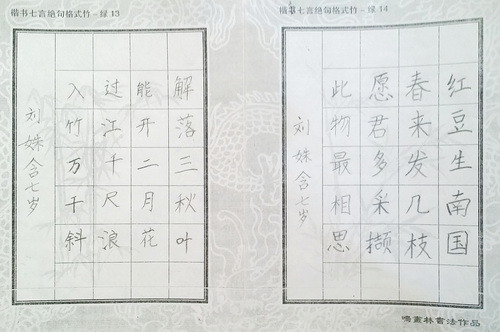 楷书七言绝句格式竹－绿 13
解落三秋叶
能开二月花
过江千尺浪
入竹万干斜
刘姝含七岁
楷书七言绝句格式竹－绿 14
红豆生南国
春来发几枝
愿君多采撷
此物最相思
刘姝含七岁
林書法作品